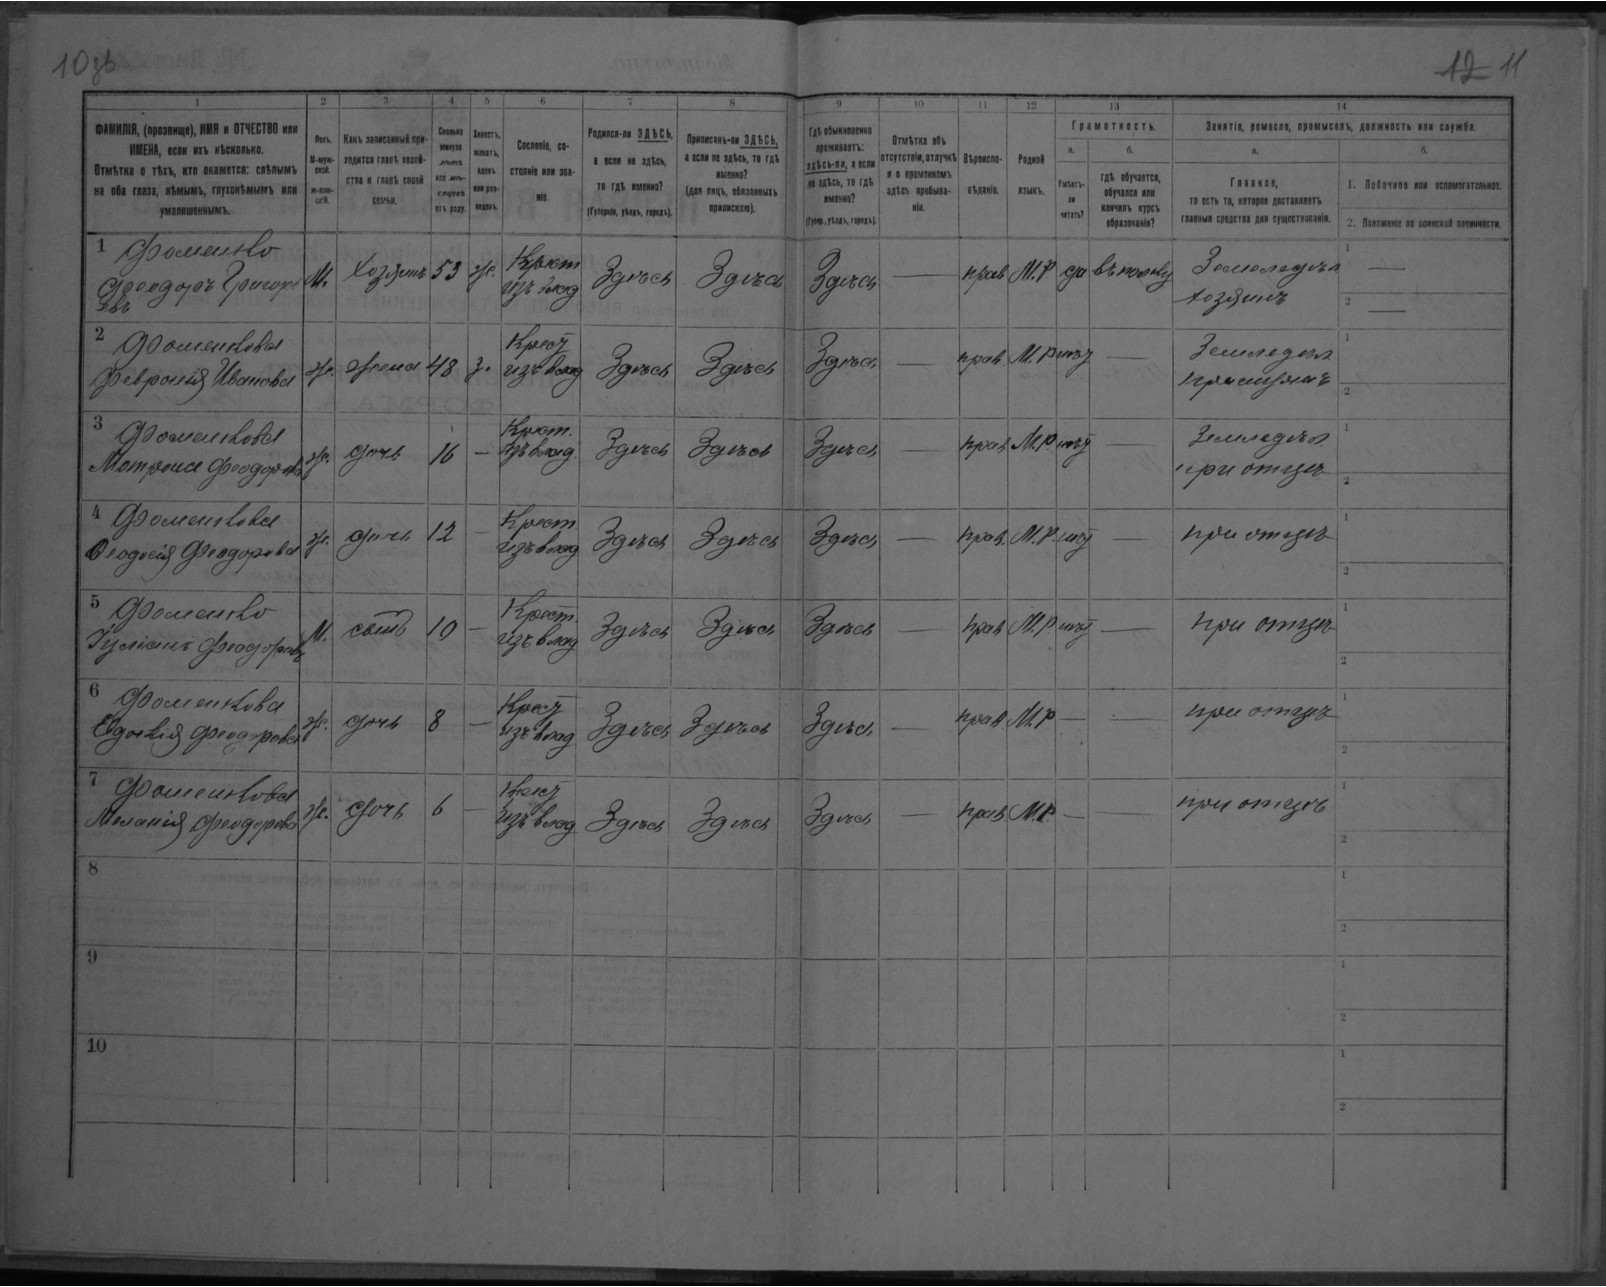 10 зв
12 11
1 2 3 4 5 6 7 8 9 10 11 12 13 14
ФАМИЛІЯ, (прозвище), ИМЯ и ОТЧЕСТВО или
ИМЕНА, если ихъ нѣсколько.
Отмѣтка о тѣхъ, кто окажется: слѣпымъ
на оба глаза, нѣмымъ, глухонѣмымъ или
умалишеннымъ.
Полъ.
М-муж-
ской.
Ж-жен-
скій.
Какъ записанный при-
ходится главѣ хозяй-
ства и главѣ своей
семьи.
Сколько
минуло
лѣтъ
или мѣ-
сяцевъ
отъ роду.
Холостъ,
женатъ,
вдовъ
или раз-
веденъ.
Сословіе, со-
стояніе или зва-
ніе.
Родился-ли ЗДѢСЬ,
а если не здѣсь,
то гдѣ именно?
(Губернія, уѣздъ, городъ).
Приписанъ-ли ЗДѢСЬ,
а если не здѣсь, то гдѣ
именно?
(для лицъ, обязанныхъ
припискою).
Гдѣ обыкновенно
проживаетъ:
здѣсь-ли, а если
не здѣсь, то гдѣ
именно?
(Губер., уѣздъ, городъ).
Отмѣтка объ
отсутствіи, отлучкѣ
и о временномъ
здѣсь пребыва-
ніи.
Вѣроиспо-
вѣданіе.
Родной
языкъ.
Грамотность.
а.
Умѣетъ-
ли
читать?
б.
гдѣ обучается,
обучался или
кончилъ курсъ
образованія?
Занятіе, ремесло, промыселъ, должность или служба.
а.
Главное,
то есть то, которое доставляетъ
главныя средства для существованія.
б.
1. Побочное или вспомогательное.
2. Положеніе по воинской повинности.
1 Фоменко
Феодоръ Григорі
евъ
М. Хозяинъ 53 ж. Крест
изъ влад Здѣсь Здѣсь Здѣсь — прав М.Р да въ полку Земледѣл
хозяинъ
1 —
2 —
2 Фоменкова
Февронія Иванова ж. жена 48 з. Крест
изъ влад Здѣсь Здѣсь Здѣсь — прав М.Р нѣт — Земледѣл
1
2
3 Фоменкова
Матрена Феодорова ж. дочь 16 — Крест.
изъ влад. Здѣсь Здѣсь Здѣсь — прав М.Р. нѣт — Земледѣл
при отцѣ
1
2
4 Фоменкова
Феодосія Феодорова ж. дочь 12 — Крест.
изъ влад Здѣсь Здѣсь Здѣсь — прав. М.Р. нѣт — при отцѣ
1
2
5 Фоменко
Іуліанъ Феодоровъ М. сынъ 10 — Крест.
изъ влад Здѣсь Здѣсь Здѣсь — прав М.Р нѣт — при отцѣ
1
2
6 Фоменкова
Евдокія Феодорова ж. дочь 8 — Крест
изъ влад Здѣсь Здѣсь Здѣсь — прав М.Р — — при отцѣ
1
2
7 Фоменкова
Меланія Феодорова ж. дочь 6 — Крест
изъ влад Здѣсь Здѣсь Здѣсь — прав М.Р. — — при отцѣ
1
2
8
1
2
9
1
2
10
1
2